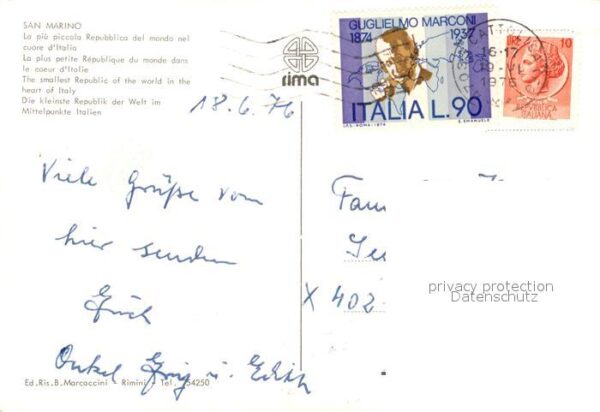 SAN MARINO
La più piccola Repubblica del mondo nel
cuore d'Italia
La plus petite République du monde dans
le coeur d'Italie
The smallest Republic of the world in the
heart of Italy
Die kleinste Republik der Welt im
Mittelpunkte Italien
rima
GUGLIELMO MARCONI
1874 1937
ITALIA L.90
I.P.S.-ROMA-1974 E. EMANUELE
LIRE 10
REPUBBLICA
ITALIANA
16-17
1976
18.6.76
Viele Grüße von
hier senden
Euch
Onkel u. Edith
Fam
X 402
privacy protection
Datenschutz
Ed.Ris.B.Marcaccini - Rimini - Tel. 54250